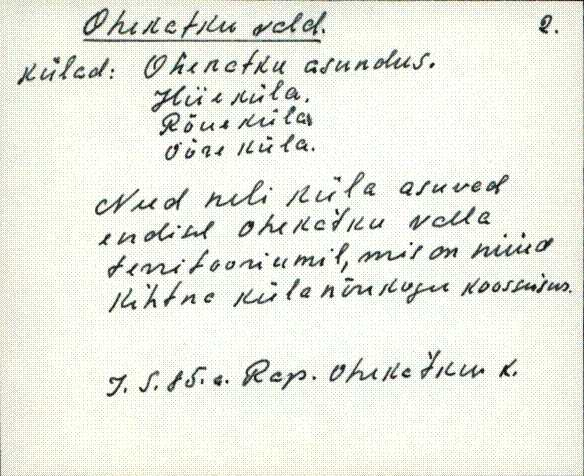 Ohekatku vald. 2.
Külad: Ohekatku asundus.
Hüeküla.
Rõueküla
Oõre küla.
Need neli küla asuvad
endise Ohekatku valla
territooriumil, mis on nüüd
Kihtna külanõukogu koosseisus.
85. a. Rap. Ohekatku k.